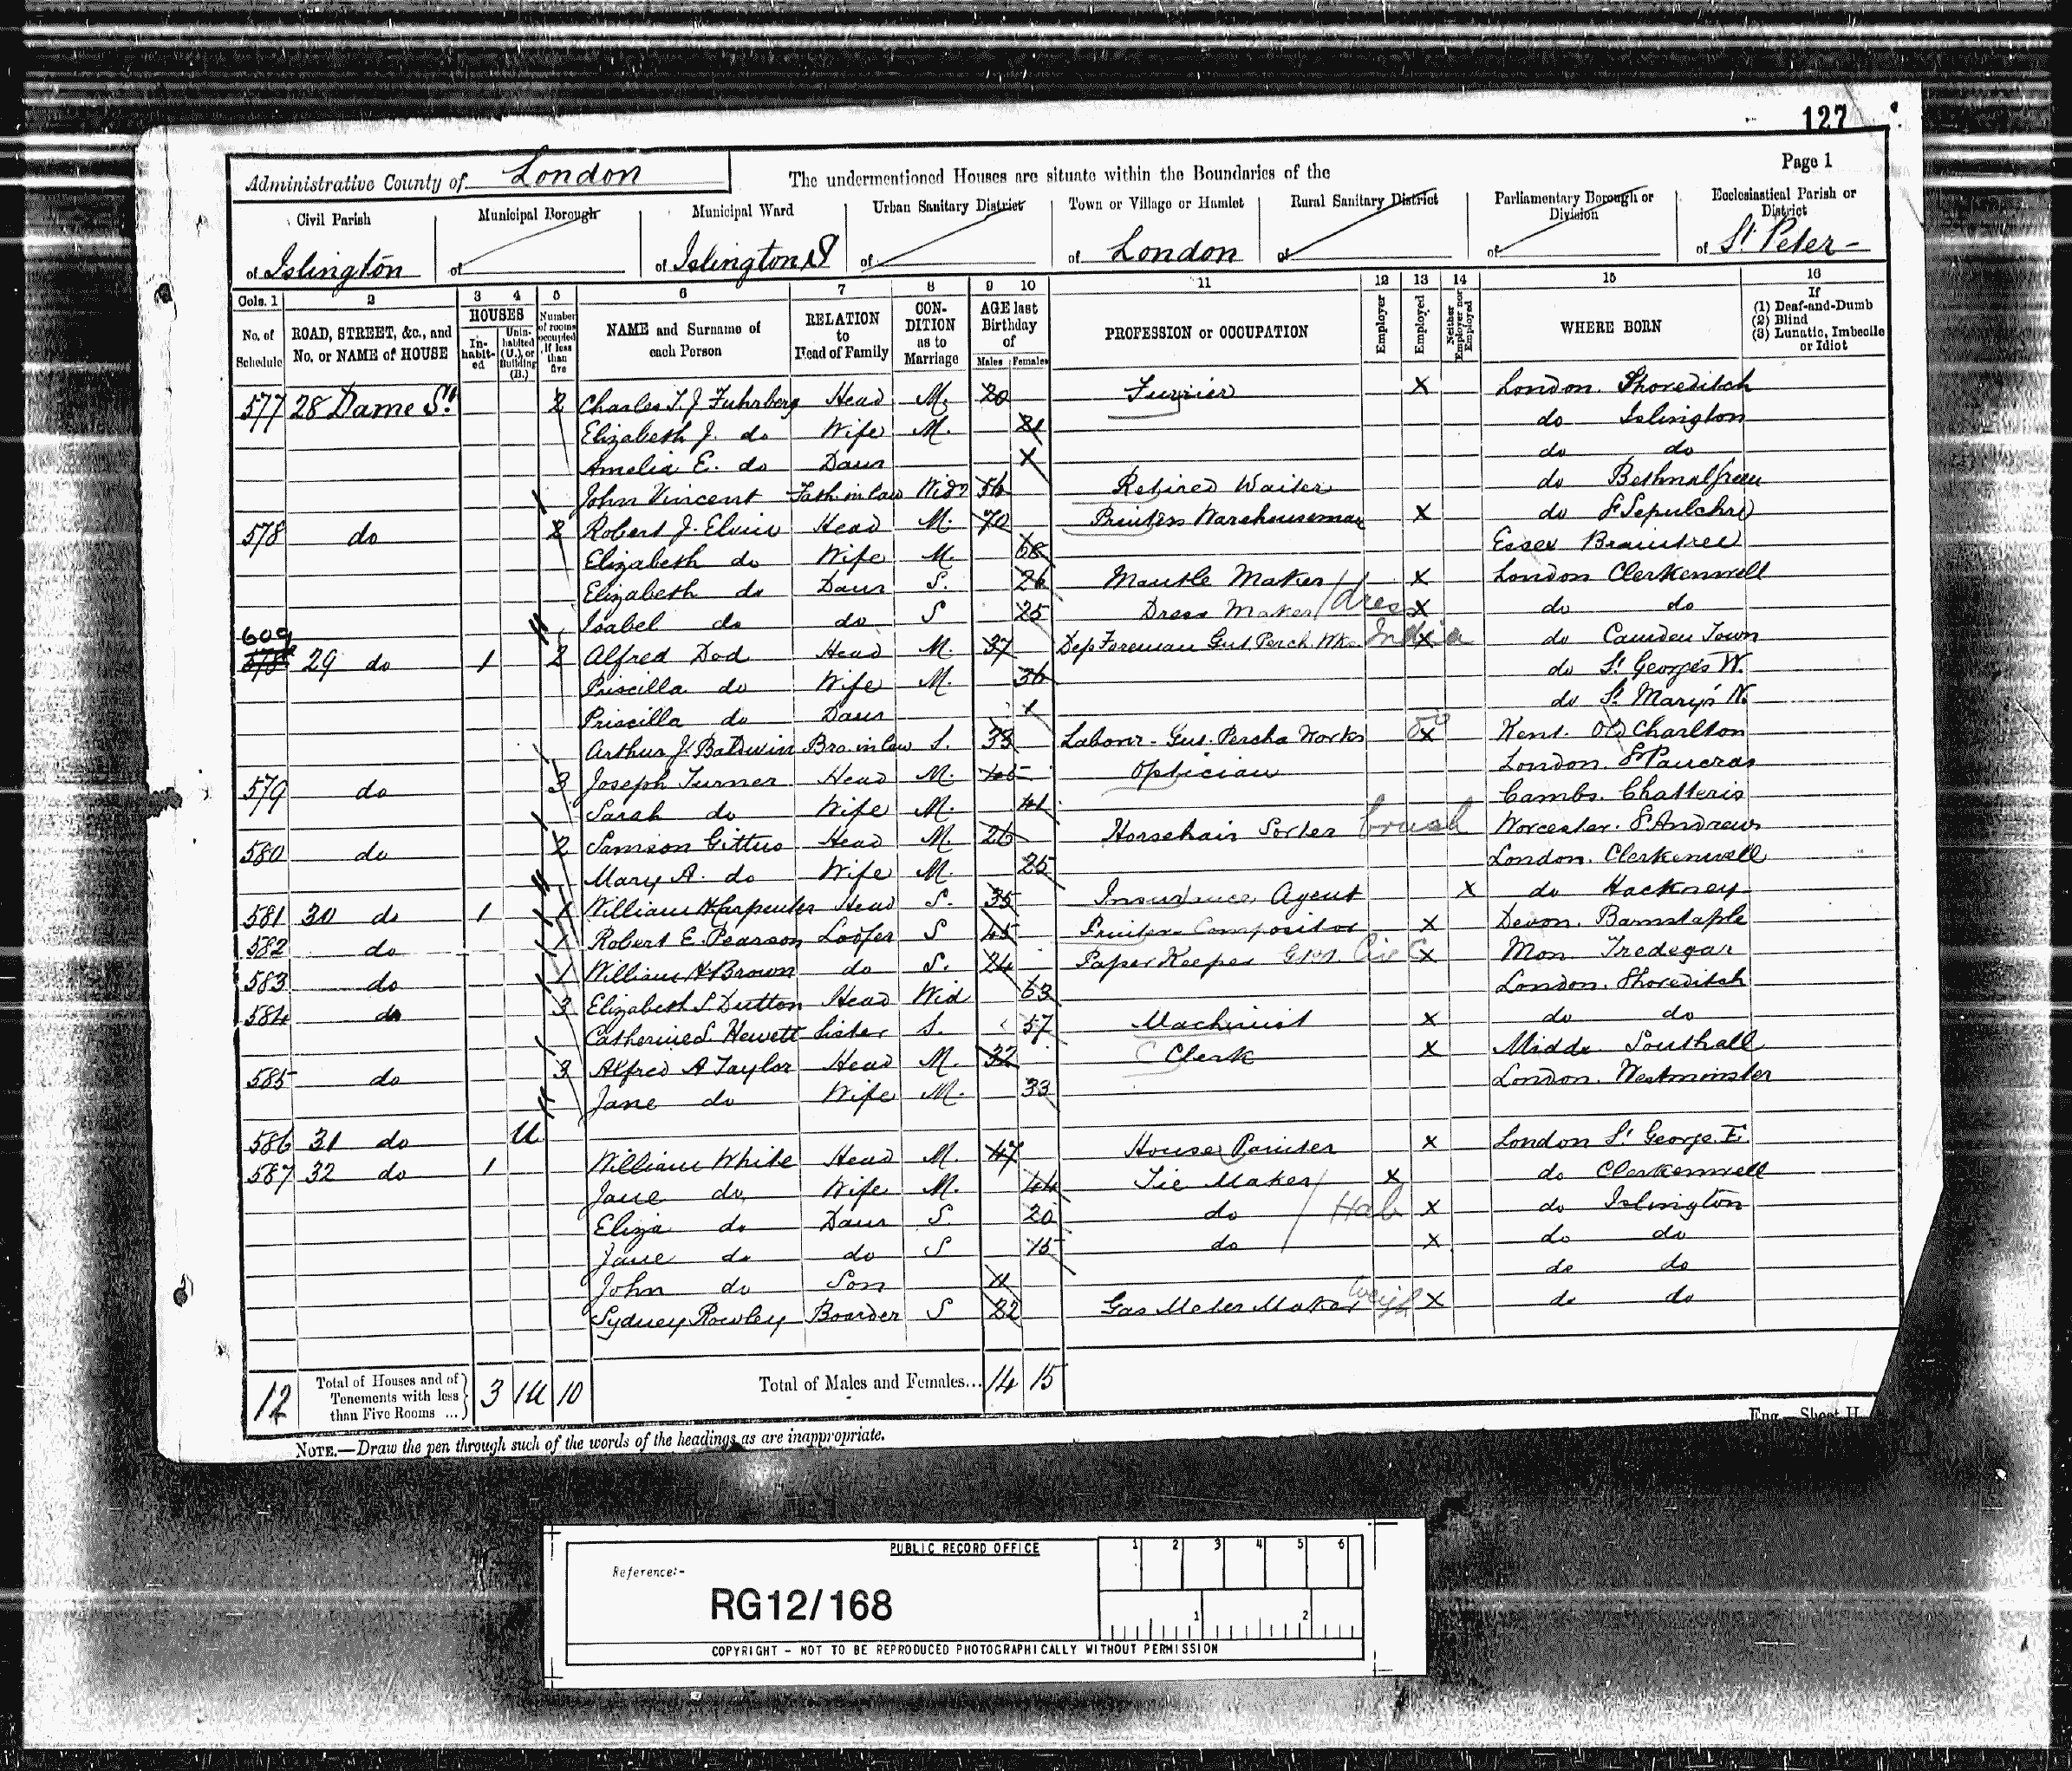 127
Page 1
Administrative County of London The undermentioned Houses are situate within the Boundaries of the
Civil Parish Municipal Borough Municipal Ward Urban Sanitary District Town or Village or Hamlet Rural Sanitary District Parliamentary Borough or Division Ecclesiastical Parish or District
of Islington of of Islington of of London of of of St Peter
Cols. 1 2 3 4 5 6 7 8 9 10 11 12 13 14 15 16
No. of Schedule ROAD, STREET, &c., and No. or NAME of HOUSE HOUSES Inhabited Uninhabited (U.), or Building (B.) Number of rooms occupied if less than five NAME and Surname of each Person RELATION to Head of Family CONDITION as to Marriage AGE last Birthday of Males Females PROFESSION or OCCUPATION Employer Employed Neither Employer nor Employed WHERE BORN If (1) Deaf-and-Dumb (2) Blind (3) Lunatic, Imbecile or Idiot
577 28 Dame St 2 Charles T. J. Fuhrberg Head M. 20 Furrier X London. Shoreditch
Elizabeth J. do Wife M. 21 do Islington
Amelia E. do Daur do do
John Vincent Fath in law Widr 56 Retired Waiter do Bethnal Green
578 do 2 Robert J. Elvin Head M. 70 Printers Warehouseman X do St Sepulchre
Elizabeth do Wife M. 68 Essex Braintree
Elizabeth do Daur S. 26 Mantle Maker X London Clerkenwell
Isabel do do S 25 Dress Maker dres X do do
609 578a 29 do 1 2 Alfred Dod Head M. 37 Dep Foreman Gut Perch. Wks India X do Camden Town
Priscilla do Wife M. 36 do St George's W.
Priscilla do Daur 1 do St Mary's N.
Arthur J. Baldwin Bro. in law S. 33 Labour - Gut. Percha Works do X Kent. Old Charlton
579 do 3 Joseph Turner Head M. Optician London St Pancras
Sarah do Wife M. 41 Cambs. Chatteris
580 do 2 Samson Gittus Head M. 26 Horsehair Sorter brush Worcester. St Andrews
Mary A. do Wife M. 25 London. Clerkenwell
581 30 do 1 1 William H Carpenter Head S. 35 Insurance Agent X do Hackney
582 do 1 Robert E. Pearson Lodger S 45 Printer Compositor X Devon. Barnstaple
583 do 1 William H Brown do S. 24 Paper Keeper X Mon Tredegar
584 do 3 Elizabeth S. Dutton Head Wid 63 London. Shoreditch
Catherine S. Hewett Sister S. 57 Machinist X do do
585 do 3 Alfred A Taylor Head M. 32 C Clerk X Middx Southall
Jane do Wife M. 33 London. Westminster
586 31 do U
587 32 do 1 William White Head M. 47 House Painter X London St George E.
Jane do Wife M. 44 Tie Maker X do Clerkenwell
Eliza do Daur S 20 do Hab X do Islington
Jane do do S 15 do X do do
John do Son 11 do do
Sydney Rowley Boarder S 22 Gas Meter Maker Weigh X do do
12 Total of Houses and of Tenements with less than Five Rooms ... 3 1U 10 Total of Males and Females... 14 15
Eng.—Sheet H
NOTE.—Draw the pen through such of the words of the headings as are inappropriate.
PUBLIC RECORD OFFICE 1 2 3 4 5 6
Reference:-
RG12/168
1 2
COPYRIGHT - NOT TO BE REPRODUCED PHOTOGRAPHICALLY WITHOUT PERMISSION